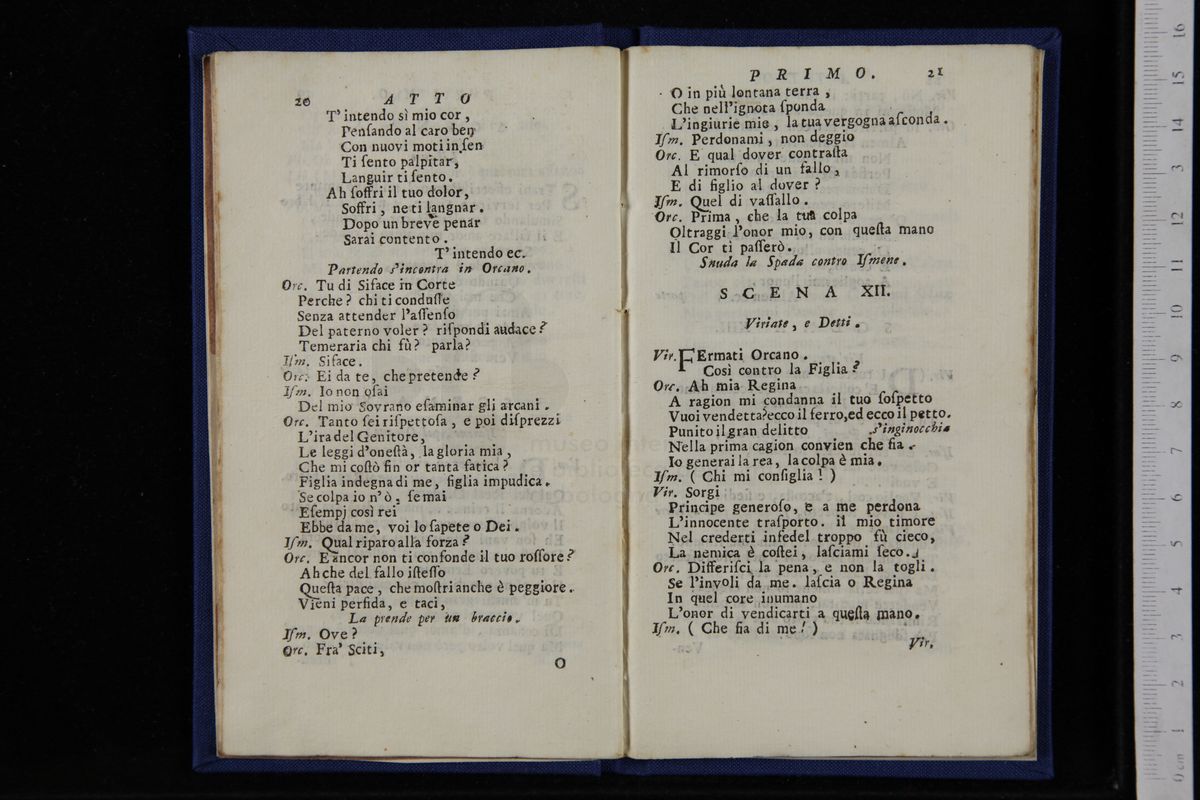 20 ATTO
T' intendo sì mio cor ,
Penſando al caro ben
Con nuovi moti in ſen
Ti ſento palpitar,
Languir ti ſento .
Ah ſoffri il tuo dolor,
Soffri , ne ti langnar .
Dopo un breve penar
Sarai contento .
T' intendo ec.
Partendo s'incontra in Orcano.
Orc. Tu di Siface in Corte
Perche ? chi ti conduſſe
Senza attender l'aſſenſo
Del paterno voler ? riſpondi audace ?
Temeraria chi fù ? parla ?
Iſm. Siface .
Orc. Ei da te, che pretende ?
Iſm. Io non oſai
Del mio Sovrano eſaminar gli arcani .
Orc. Tanto ſei riſpettoſa , e poi diſprezzi
L'ira del Genitore,
Le leggi d'oneſtà, la gloria mia ,
Che mi coſtò fin or tanta fatica ?
Figlia indegna di me, figlia impudica .
Se colpa io n' ò , ſe mai
Eſempj così rei
Ebbe da me, voi lo ſapete o Dei .
Iſm. Qual riparo alla forza ?
Orc. E ancor non ti confonde il tuo roſſore ?
Ah che del fallo iſteſſo
Queſta pace , che moſtri anche è peggiore .
Vieni perfida, e taci,
La prende per un braccio .
Iſm. Ove ?
Orc. Fra' Sciti,
O
PRIMO. 21
O in più lontana terra ,
Che nell'ignota ſponda
L'ingiurie mie , la tua vergogna aſconda .
Iſm. Perdonami , non deggio
Orc. E qual dover contraſta
Al rimorſo di un fallo ,
E di figlio al dover ?
Iſm. Quel di vaſſallo .
Orc. Prima , che la tua colpa
Oltraggi l'onor mio, con queſta mano
Il Cor ti paſſerò.
Snuda la Spada contro Iſmene .
SCENA XII.
Viriate , e Detti .
Vir. FErmati Orcano .
Così contro la Figlia ?
Orc. Ah mia Regina
A ragion mi condanna il tuo ſoſpetto
Vuoi vendetta? ecco il ferro, ed ecco il petto.
Punito il gran delitto s'inginocchia
Nella prima cagion convien che ſia .
Io generai la rea , la colpa è mia .
Iſm. ( Chi mi conſiglia ! )
Vir. Sorgi
Principe generoſo, e a me perdona
L'innocente traſporto. il mio timore
Nel crederti infedel troppo fù cieco,
La nemica è coſtei , laſciami ſeco .
Orc. Differiſci la pena , e non la togli .
Se l'involi da me. laſcia o Regina
In quel core inumano
L'onor di vendicarti a queſta mano.
Iſm. ( Che fia di me ! )
Vir,